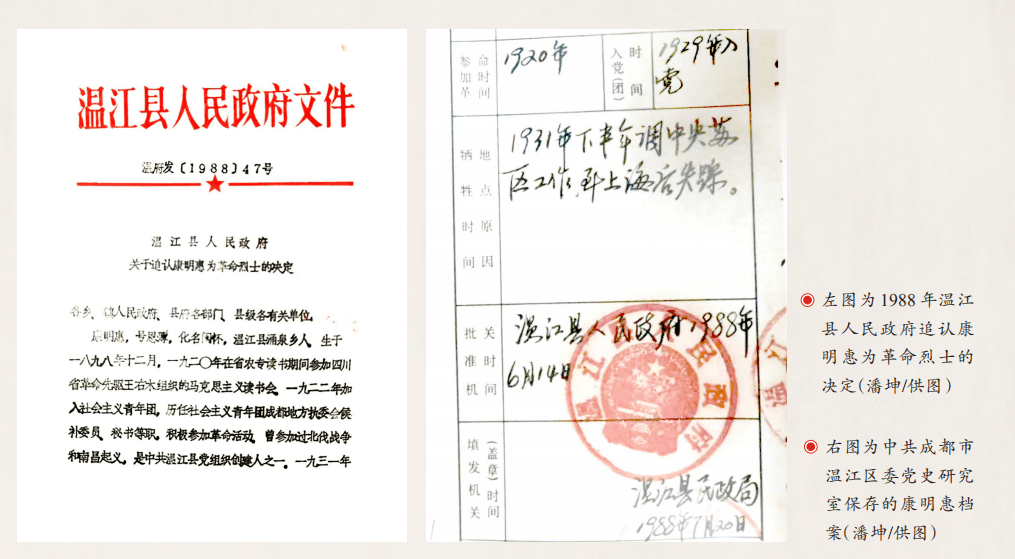 温江县人民政府文件
温府发〔1988〕47号
温江县人民政府
关于追认康明惠为革命烈士的决定
各乡、镇人民政府、县府各部门、县级各有关单位:
康明惠,号恩溥,化名闻怀,温江县涌泉乡人,生于
一八九八年十二月,一九二〇年在省农专读书期间参加四川
省革命先驱王右木组织的马克思主义读书会,一九二二年加
入社会主义青年团,历任社会主义青年团成都地方执委会候
补委员、秘书等职。积极参加革命活动,曾参加过北伐战争
和南昌起义。是中共温江县党组织创建人之一。一九三一年
参加革命时间
1920年
入党(团)时间
1929年入
党
牺牲时间地点原因
1931年下半年调中央苏
区工作,到上海后失踪。
批准机关时间
温江县人民政府1988年
6月14日
温江县人民政府
填发机关(盖章)时间
温江县民政局
1988年7月20日
左图为1988年温江
县人民政府追认康
明惠为革命烈士的
决定(潘坤/供图)
右图为中共成都市
温江区委党史研究
室保存的康明惠档
案(潘坤/供图)